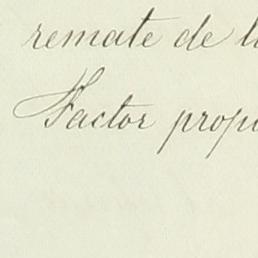 remate de l
Factor prop